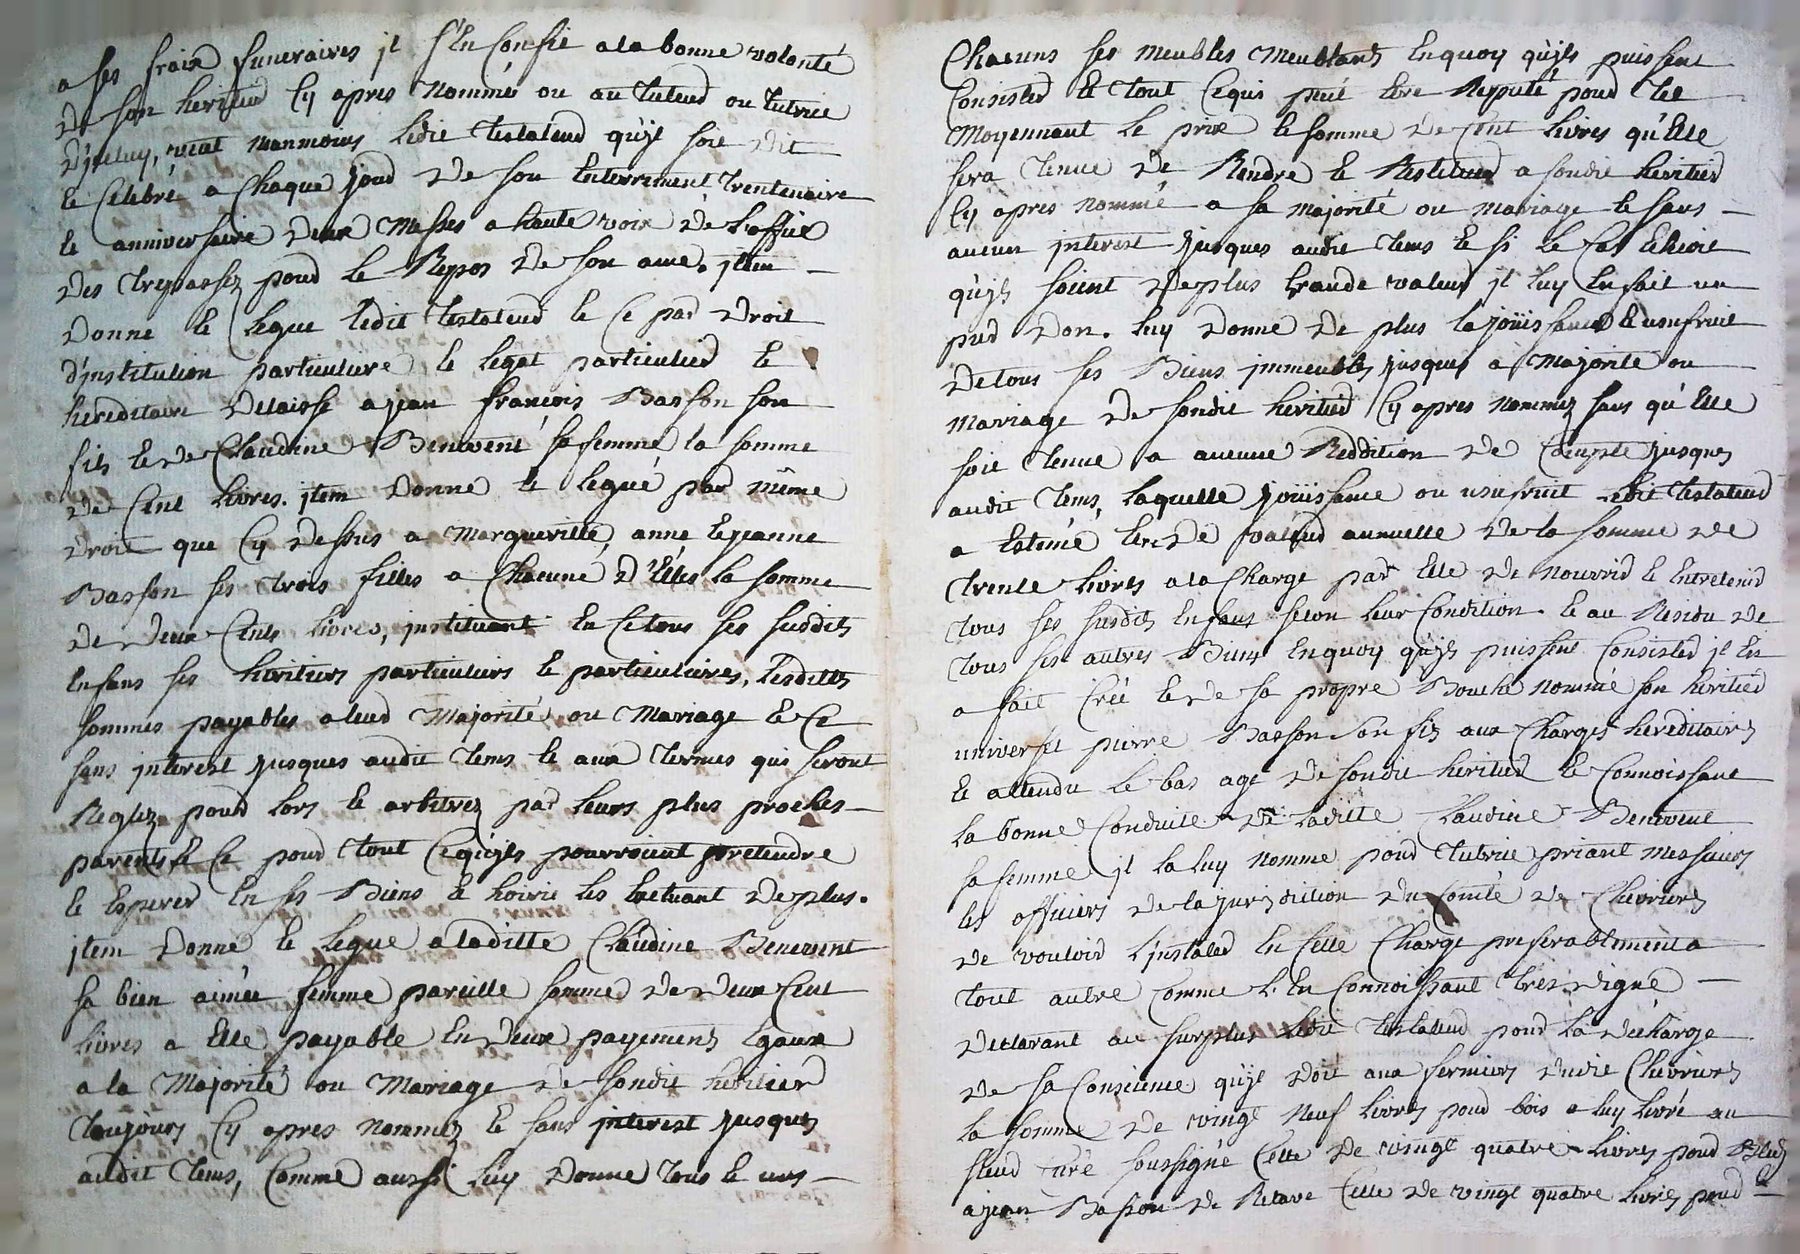 a ses fraix funeraires il s'En Confie a la bonne volonté
de son heritier Cy apres Nommé ou au tuteur ou tutrice
D'iceluy, veut neanmoins ledit testateur qu'jl soit dit
et Celebré a Chaque jour de son Enterrement trentenaire
et anniversaire deux Messes a haute voix de L'office
des trepassez pour le Repos de son ame. jtem
Donne et Legue ledit testateur et Ce par Droit
d'jnstitution particuliere et legat particulier et
hereditaire Delaisse a jean francois Basson son
fils et de Claudine Benevent sa femme la somme
de Cent livres. jtem Donne et legue par même
Droit que Cy dessus a Margueritte, anne et jeanne
Basson ses trois filles a Chacune d'Elles la somme
de deux Cents livres, jnstituant En Ce tous ses susdits
Enfans ses heritiers particuliers et particulieres, lesdittes
sommes payables a leur Majorité ou Mariage et Ce
sans jnterest jusques audit tems et aux termes qui seront
Reglez pour lors et arbitrez par leurs plus proches
parents et Ce pour tout Ce qu'jls pourroient pretendre
et Esperer En ses Biens et hoirie les Excluant de plus.
jtem Donne et legue a laditte Claudine Benevent
sa bien aimée femme pareille somme de deux Cent
livres a Elle payable En deux payements Egaux
a la Majorité ou Mariage de sondit heritier
toujours Cy apres nommez et sans jnterest jusques
audit tems, Comme aussi luy Donne tous et uns
Chacuns ses meubles meublants En quoy qu'jls puissent
Consister et tout Ce qui peut Etre Reputé pour tel
Moyennant le prix et somme de Cent livres qu'Elle
sera tenue de Rendre et Restituer a sondit heritier
Cy apres nommé a sa majorité ou mariage et sans
aucun jnterest jusques audit tems et si le Cas Echeoit
qu'jls soient de plus Grande valeur jl luy En fait un
pur don. luy Donne de plus la joüissance et usufruit
de tous ses Biens jmmeubles jusques a Majorité ou
Mariage de sondit heritier Cy apres nommez sans qu'Elle
soit tenue a aucune Reddition de Compte jusques
audit tems, laquelle joüissance ou usufruit ledit testateur
a Estimé Etre de valeur annuelle de la somme de
trente livres a la Charge par Elle de nourrir et Entretenir
tous ses susdits Enfans selon leur Condition. et au Residu de
tous ses autres Biens En quoy qu'jls puissent Consister jl En
a fait Créé et de sa propre Bouche nommé son heritier
universel pierre Basson son fils aux Charges hereditaires
et attendu le bas age de sondit heritier et Connoissant
la bonne Conduite de laditte Claudine Benevent
sa femme jl la luy nomme pour tutrice priant Messieurs
les officiers de la jurisdiction du Comté de Chevrieres
de vouloir l'jnstaler En Cette Charge preferablement a
tout autre Comme l'En Connoissant tres digne
declarant au surplus ledit testateur pour la decharge
de sa Conscience qu'jl doit aux fermiers dudit Chevrieres
la somme de vingt Neuf livres pour bois a luy livré au
sieur Curé soussigné Celle de vingt quatre livres pour Bled
a jean Basson de Celle de vingt quatre livres pour